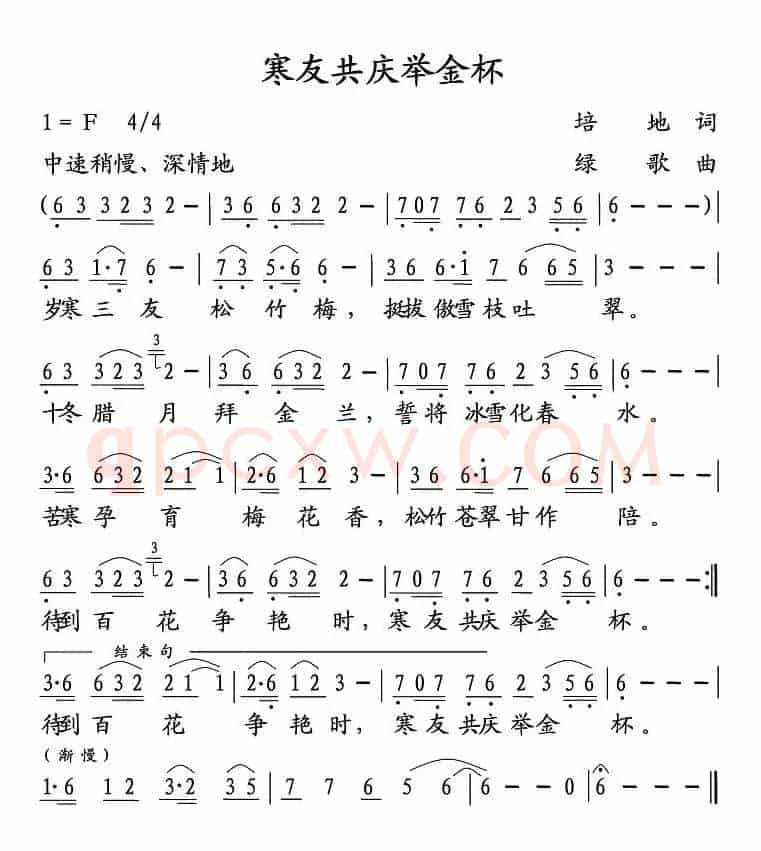 寒友共庆举金杯
1 = F 4/4 培 地 词
中速稍慢、深情地 绿 歌 曲
( 6 3 3 2 3 2 - | 3 6 6 3 2 2 - | 7 0 7 7 6 2 3 5 6 | 6 - - - ) |
6 3 1 · 7 6 - | 7 3 5 · 6 6 - | 3 6 6 · 1 7 6 6 5 | 3 - - - |
岁寒 三 友 松 竹 梅 , 挺拔 傲雪 枝 吐 翠 。
3
6 3 3 2 3 2 - | 3 6 6 3 2 2 - | 7 0 7 7 6 2 3 5 6 | 6 - - - |
十冬 腊 月 拜 金 兰 , 誓将 冰雪 化 春 水 。
qpcxw.com
3 · 6 6 3 2 2 1 1 | 2 · 6 1 2 3 - | 3 6 6 · 1 7 6 6 5 | 3 - - - |
苦寒 孕 育 梅 花 香 , 松竹 苍翠 甘 作 陪 。
3
6 3 3 2 3 2 - | 3 6 6 3 2 2 - | 7 0 7 7 6 2 3 5 6 | 6 - - - :||
待到 百 花 争 艳 时 , 寒 友 共庆 举 金 杯 。
结 束 句
3 · 6 6 3 2 2 1 1 | 2 · 6 1 2 3 - | 7 0 7 7 6 2 3 5 6 | 6 - - - |
待到 百 花 争 艳 时 , 寒 友 共庆 举 金 杯 。
( 渐 慢 )
1 · 6 1 2 3 · 2 3 5 | 7 7 6 5 6 | 6 - - 0 | 6 - - - ||